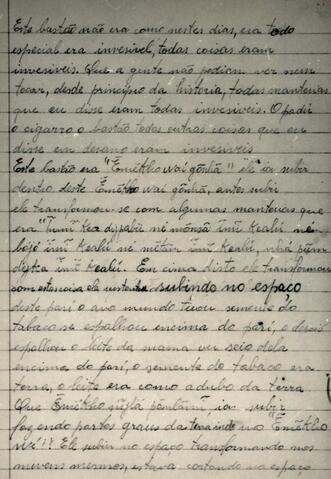 Este bastão não era como nestes dias, era todo
especial era invesivel, todas coisas eram
invesiveis. Que a gente não podiam ver nem
tocar, desde principio da história, todas manteuas
que eu disse eram todas invesiveis. O padú
o cigarro o bastão todos outras coisas que eu
disse eram invesiveis
Este bastão era "Ẽmẽkho wai gõhã" ele ia subir
dentro deste Ẽmẽkho wai gõhã, antes subir
ele transformou-se com algumas manteuas que
era
Em cima disto ele transformou
com estas coisa ele sustentu subindo no espaço
deste pari o avô mundo tirou semente do
tabaco e espalhou encima do pari, e depois
espalhou o leite da mama ver seio dela
encima do pari, o semente do tabaco era
terra, o leite era como adubo da terra
Que Ẽmẽkho ia subir
fazendo partes graus da terra indo no Ẽmẽkho
Ele subir no espaço transformando nos
nuvens mesmos, estava cortando no espaço